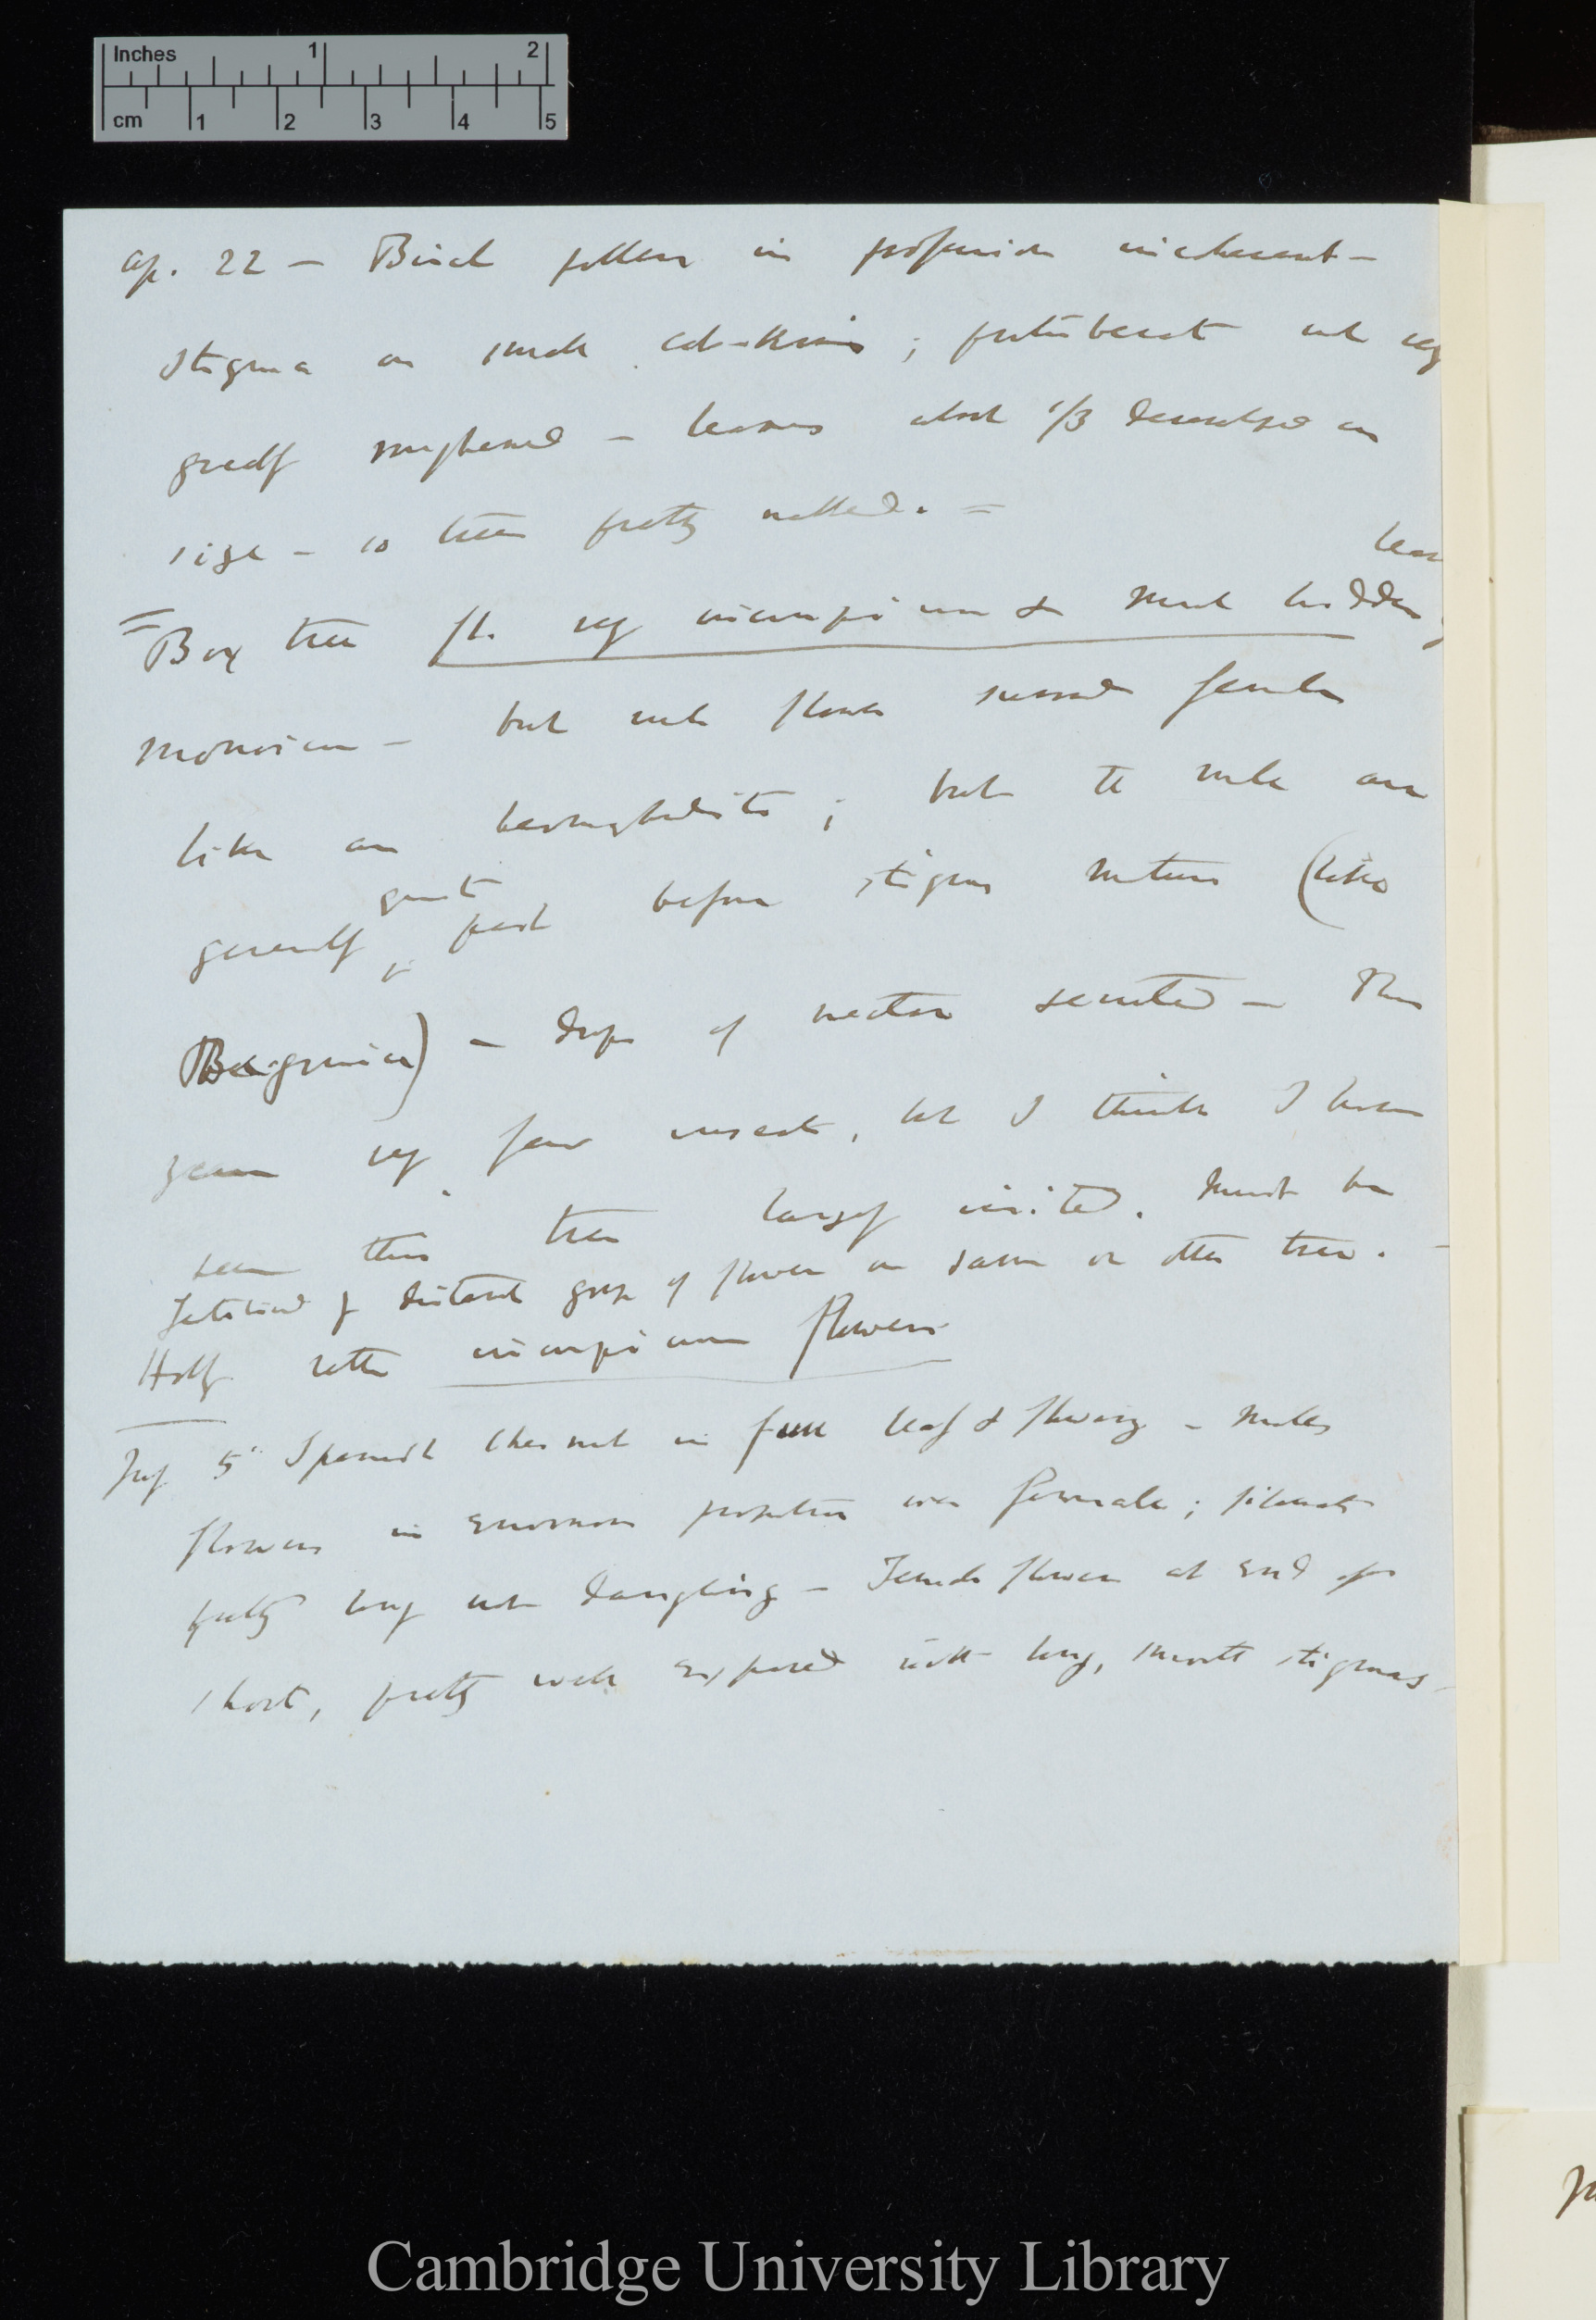 Inches 1 2
cm 1 2 3 4 5
Ap. 22 — Birch pollen in profusion incoherent —
stigma on small cat-kins ; protuberant not very
greatly roughened — leaves about 1/3 developed in
size — so tree pretty naked. =
leaves
= Box tree fl. very inconspicuous & much hidden
monoicous — but male flowers surround female
like an hermaphrodite ; but the male are
great
generally past before stigma mature (like
Begonia) — drops of nectar secreted — Have
seen very few insects, but I think I have
seen this tree largely visited. Must be
fertilised by distant group of flower on same or other tree. —
Holly rather inconspicuous flowers
July 5th Spanish Chesnut in full leaf & flowering — males
flowers in enormous proportion over female ; filaments
pretty long not dangling — Female flower at end of
short, pretty well exposed with long, smooth stigmas —
Cambridge University Library